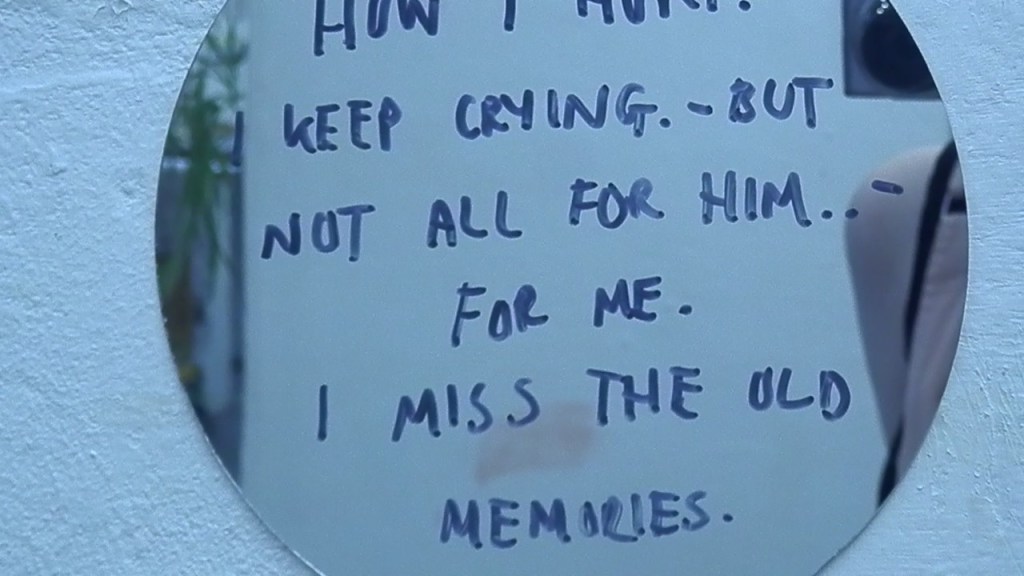 HOW I HURT.
I KEEP CRYING. - BUT
NOT ALL FOR HIM.. -
FOR ME.
I MISS THE OLD
MEMORIES.